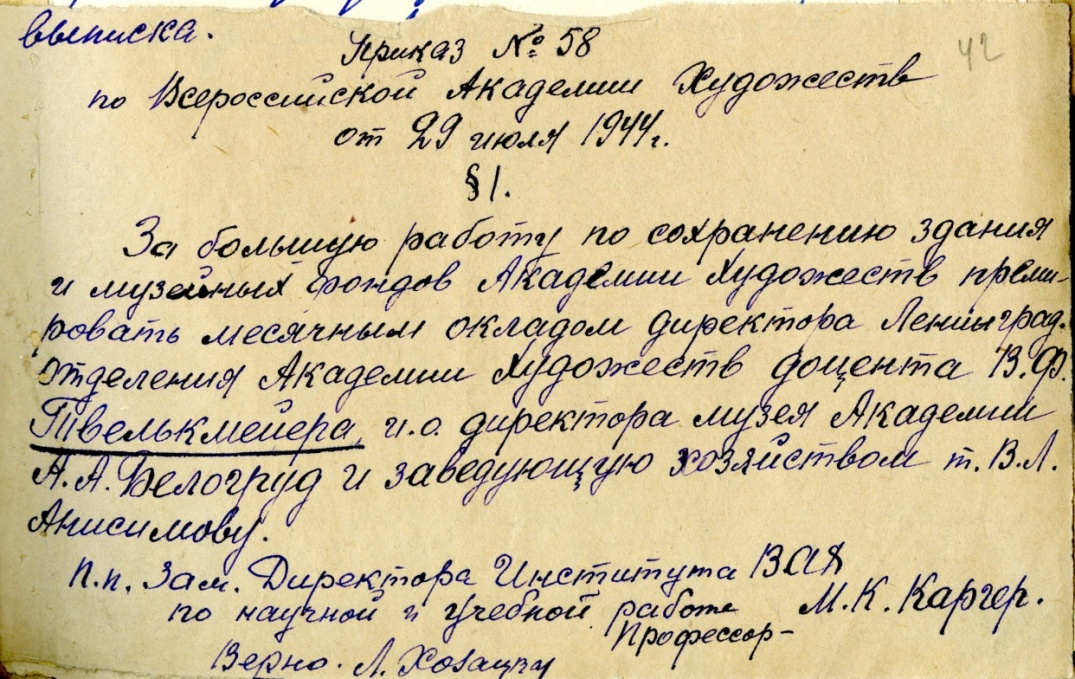 выписка.
Приказ № 58
42
по Всероссийской Академии Художеств
от 29 июля 1944 г.
§ 1.
За большую работу по сохранению здания
и музейных фондов Академии Художеств преми-
ровать месячным окладом директора Ленинград.
отделения Академии Художеств доцента В.Ф.
Твелькмейера, и.о. директора музея Академии
А.А. Белогруд и заведующую хозяйством т. В.Л.
Анисимову.
п.п. Зам. Директора Института ВАХ
по научной и учебной работе М.К. Каргер.
Профессор-
Верно. Л.